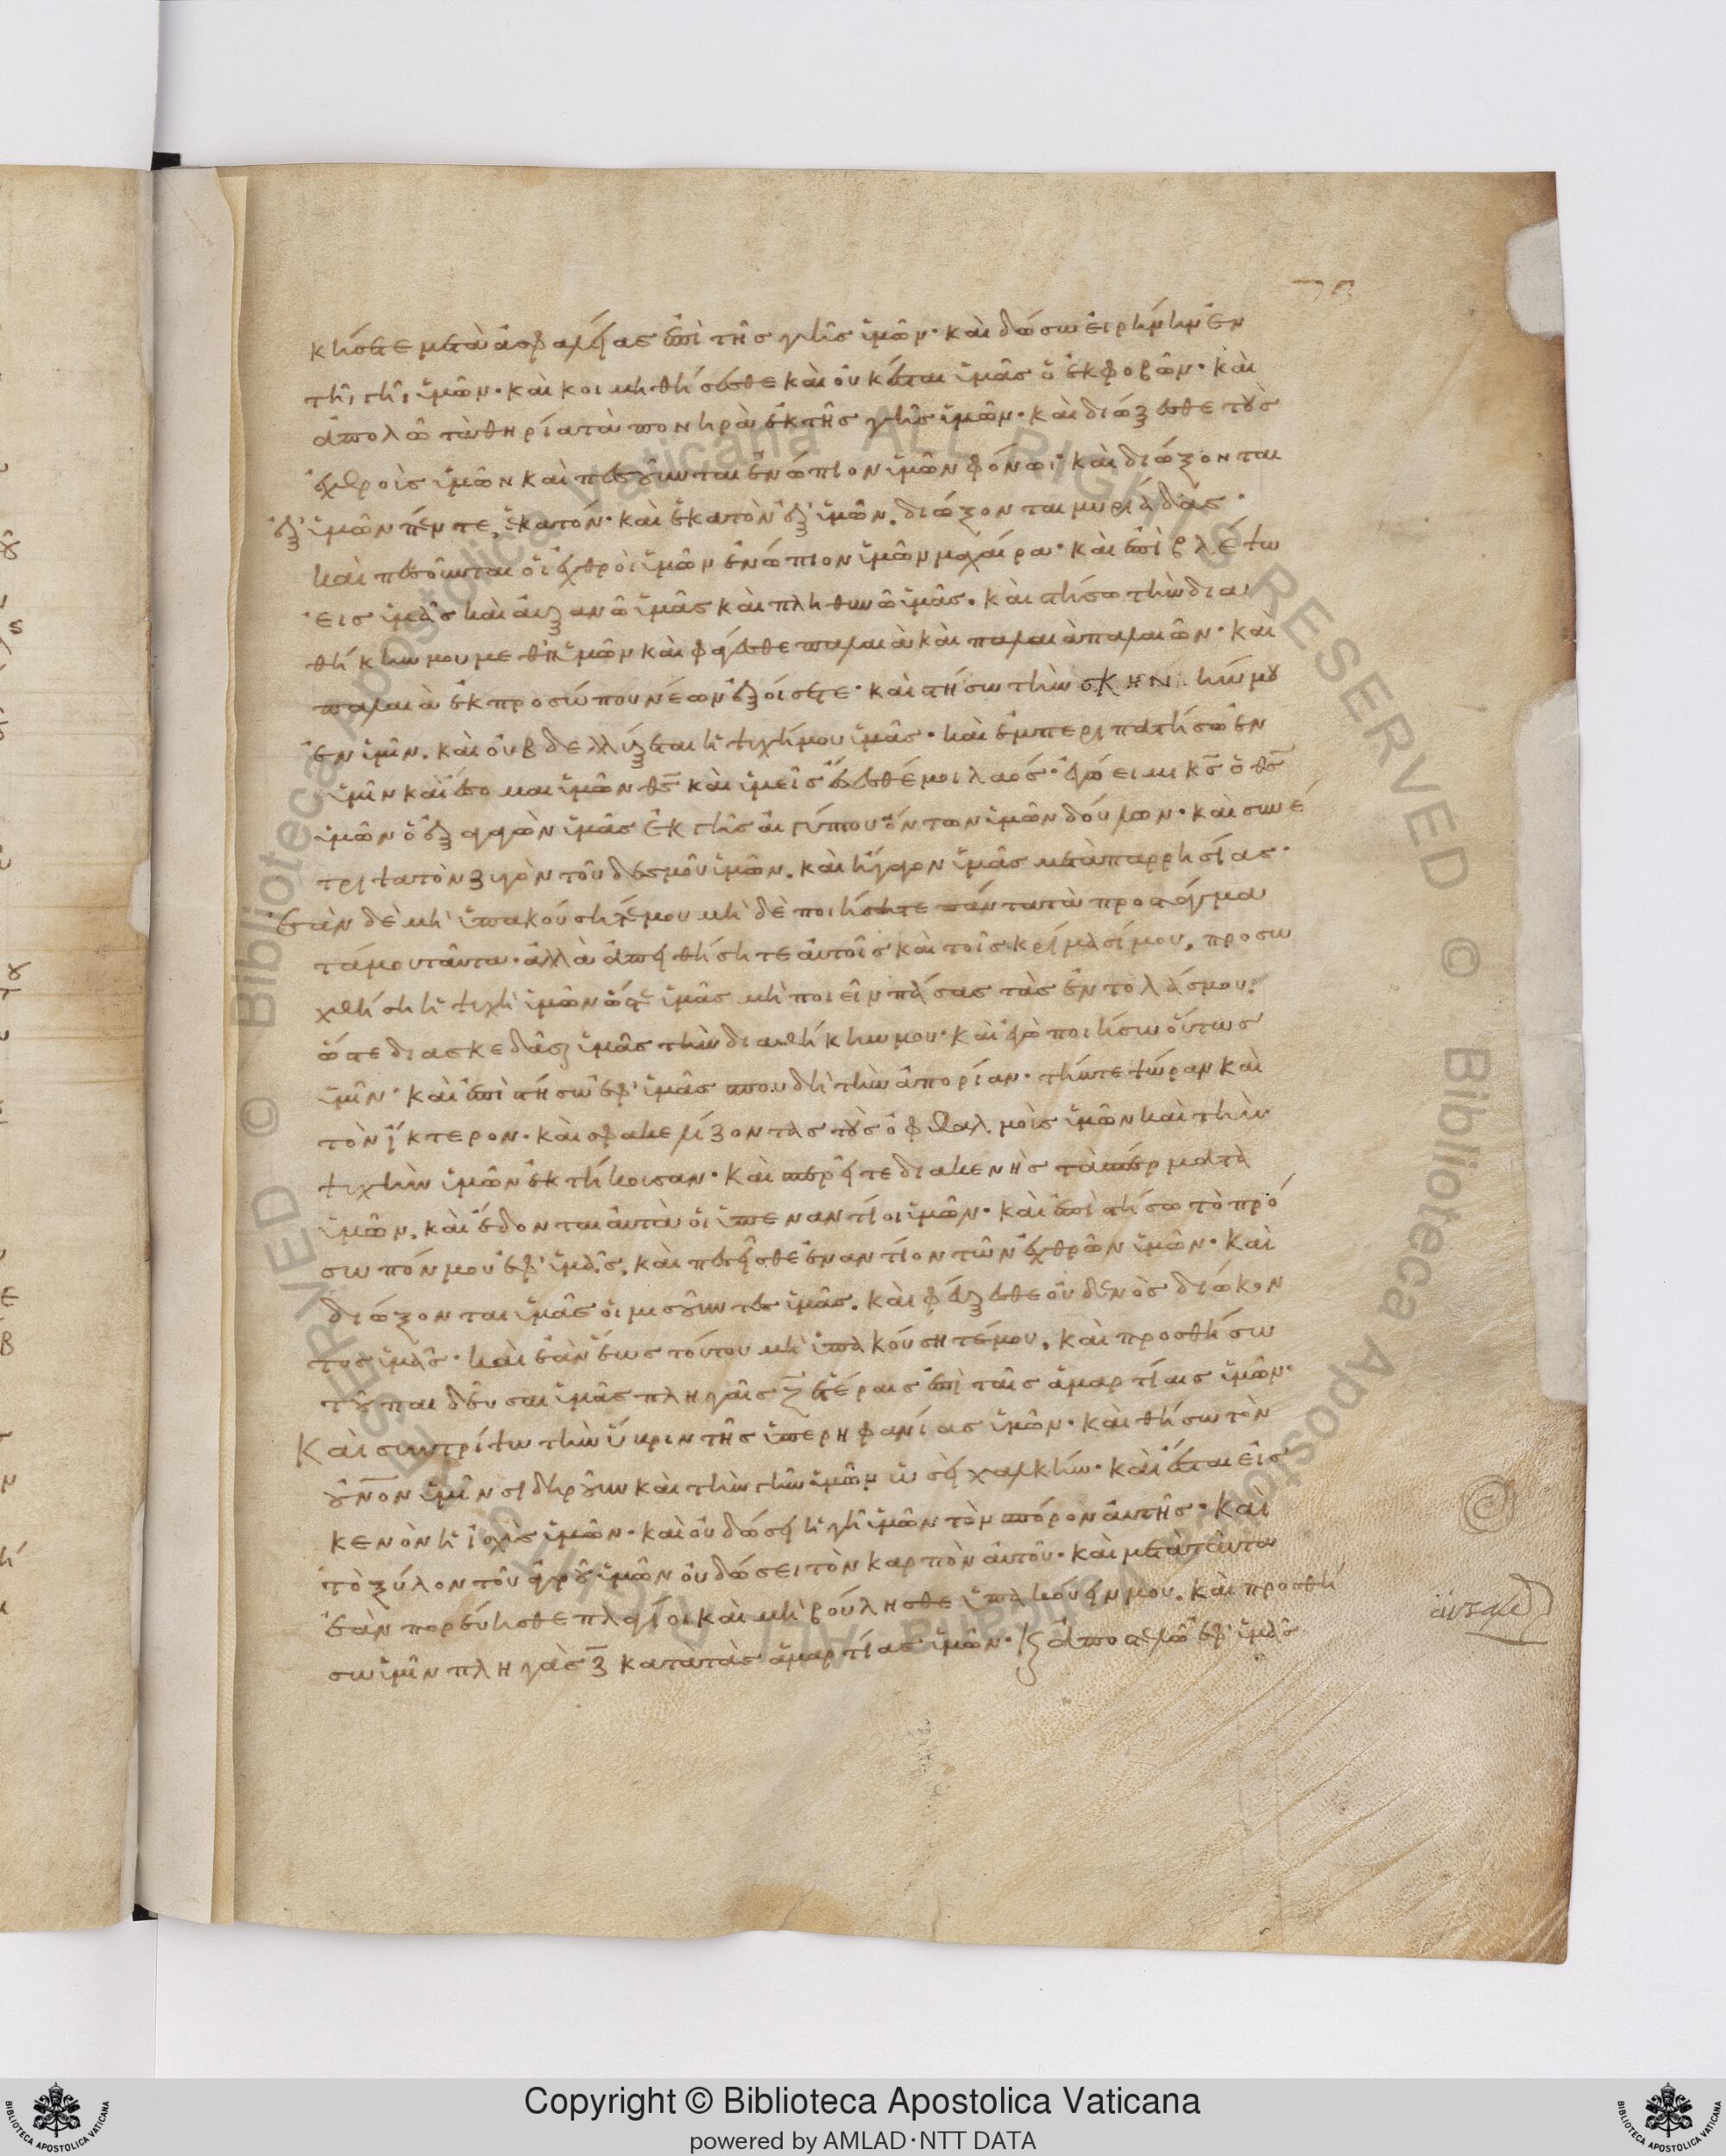 κήσετε μετὰ ἀσφαλείας ἐπὶ τῆς γῆς ὑμῶν· καὶ δώσω εἰρήνην ἐν
τῆι γῆι ὑμῶν· καὶ κοιμηθήσεσθε καὶ οὐκ ἔσται ὑμᾶς ὁ ἐκφοβῶν· καὶ
ἀπολῶ τὰ θηρία τὰ πονηρὰ ἐκ τῆς γῆς ὑμῶν· καὶ διώξεσθε τοὺς
ἐχθροὺς ὑμῶν καὶ πεσοῦνται ἐνώπιον ὑμῶν φόνωι· καὶ διώξονται
ἐξ ὑμῶν πέντε, ἑκατόν· καὶ ἑκατὸν ἐξ ὑμῶν, διώξονται μυριάδας·
καὶ πεσοῦνται οἱ ἐχθροὶ ὑμῶν ἐνώπιον ὑμῶν μαχαίρα· καὶ ἐπιβλέψω
εἰς ὑμᾶς καὶ αὐξανῶ ὑμᾶς καὶ πληθυνῶ ὑμᾶς. καὶ στήσω τὴν δια
θήκην μου μεθ' ὑμῶν καὶ φάγεσθε παλαιὰ καὶ παλαιὰ παλαιῶν· καὶ
παλαιὰ ἐκ προσώπου νέων ἐξοίσετε· καὶ στήσω τὴν σκην ήν μου
ἐν ὑμῖν. καὶ οὐ βδελλύξεται ἡ ψυχή μου ὑμᾶς· καὶ ἐμπεριπατήσω ἐν
ὑμῖν καὶ ἔσομαι ὑμῶν θς καὶ ὑμεῖς ἔσεσθέ μοι λαός· ἐγώ εἰμι κς ὁ θς
ὑμῶν ὁ ἐξαγαγὼν ὑμᾶς ἐκ γῆς αἰγύπτου ὄντων ὑμῶν δούλων· καὶ συνέ
τριψα τὸν ζυγὸν τοῦ δεσμοῦ ὑμῶν. καὶ ἤγαγον ὑμᾶς μετὰ παρρησίας·
ἐὰν δὲ μὴ ὑπακούσητέ μου μὴ δὲ ποιήσητε πάντα τὰ προστάγμα
τά μου ταῦτα· ἀλλὰ ἀπειθήσητε αὐτοῖς καὶ τοῖς κρίμασί μου, προσω
χθήση ἡ ψυχὴ ὑμῶν ὥστε ὑμᾶς μὴ ποιεῖν πάσας τὰς ἐντολάς μου·
ὥστε διασκεδάσαι ὑμᾶς τὴν διαθήκην μου· καὶ ἐγὼ ποιήσω οὕτως
ὑμῖν· καὶ ἐπιστήσω ἐφ' ὑμᾶς σπουδῆ τὴν ἀπορίαν· τήν τε ψώραν καὶ
τὸν ἴκτερον· καὶ σφακελίζοντας τοὺς ὀφθαλμοὺς ὑμῶν καὶ τὴν
ψυχὴν ὑμῶν ἐκτήκουσαν· καὶ σπερεῖτε διακενῆς τὰ σπέρματα
ὑμῶν, καὶ ἔδονται αὐτὰ οἱ ὑπεναντίοι ὑμῶν· καὶ ἐπιστήσω τὸ πρό
σωπόν μου ἐφ' ὑμᾶς, καὶ πεσεῖσθε ἐναντίον τῶν ἐχθρῶν ὑμῶν· καὶ
διώξονται ὑμᾶς οἱ μισοῦντες ὑμᾶς. καὶ φεύξεσθε οὐδενὸς διώκον
τος ὑμᾶς· καὶ ἐὰν ἕως τούτου μὴ ὑπακούσητέ μου, καὶ προσθήσω
τοῦ παιδεῦσαι ὑμᾶς πληγαῖς ζ ἑτέραις ἐπὶ ταῖς ἁμαρτίαις ὑμῶν·
Καὶ συντρίψω τὴν ὕβριν τῆς ὑπερηφανίας ὑμῶν· καὶ θήσω τὸν
οὐνον ὑμῖν σιδηροῦν καὶ τὴν γῆν ὑμῶν ὡσεὶ χαλκῆν· καὶ ἔσται εἰς
κενὸν ἡ ἰσχὺς ὑμῶν· καὶ οὐ δώσει ἡ γῆ ὑμῶν τὸν σπόρον αὐτῆς· καὶ
τὸ ξύλον τοῦ ἀγροῦ ὑμῶν οὐ δώσει τὸν καρπὸν αὐτοῦ· καὶ μετὰ ταῦτα
ἐὰν πορεύησθε πλάγιοι καὶ μὴ βούλησθε ὑπακούειν μου, καὶ προσθή
σω ὑμῖν πληγὰς ζ κατὰ τὰς ἁμαρτίας ὑμῶν· κ ἀποστελῶ ἐφ' ὑμᾶς
Copyright © Biblioteca Apostolica Vaticana
powered by AMLAD·NTT DATA